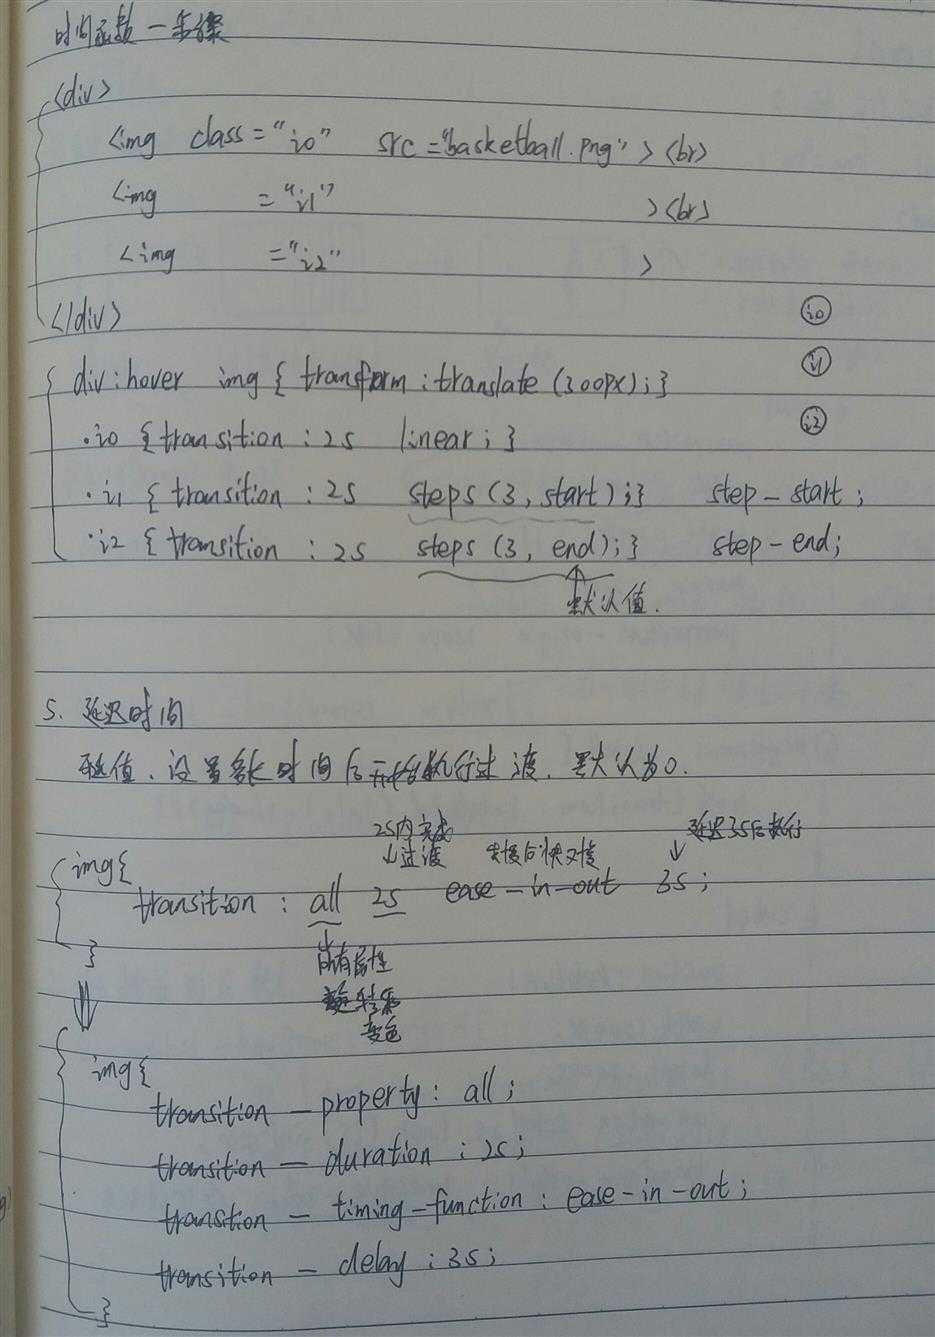 时间函数一步骤
<div>
<img class="i0" src="basketball.png"><br>
<img ="i1" ><br>
<img ="i2" >
</div>
i0
div:hover img{transform:translate(300px);}
i1
.i0 {transition:2s linear;}
i2
.i1 {transition:2s steps(3,start);} step-start;
.i2 {transition:2s steps(3,end);} step-end;
默认值.
5. 延迟时间
可选值.设置多长时间后开始执行过渡.默认为0.
2s内完成 延迟3s后执行
↓过渡 先慢后快又慢 ↓
img{
transition: all 2s ease-in-out 3s;
}
↓
所有属性
变色
img{
transition-property: all;
transition-duration:2s;
transition-timing-function:ease-in-out;
transition-delay:3s;
}